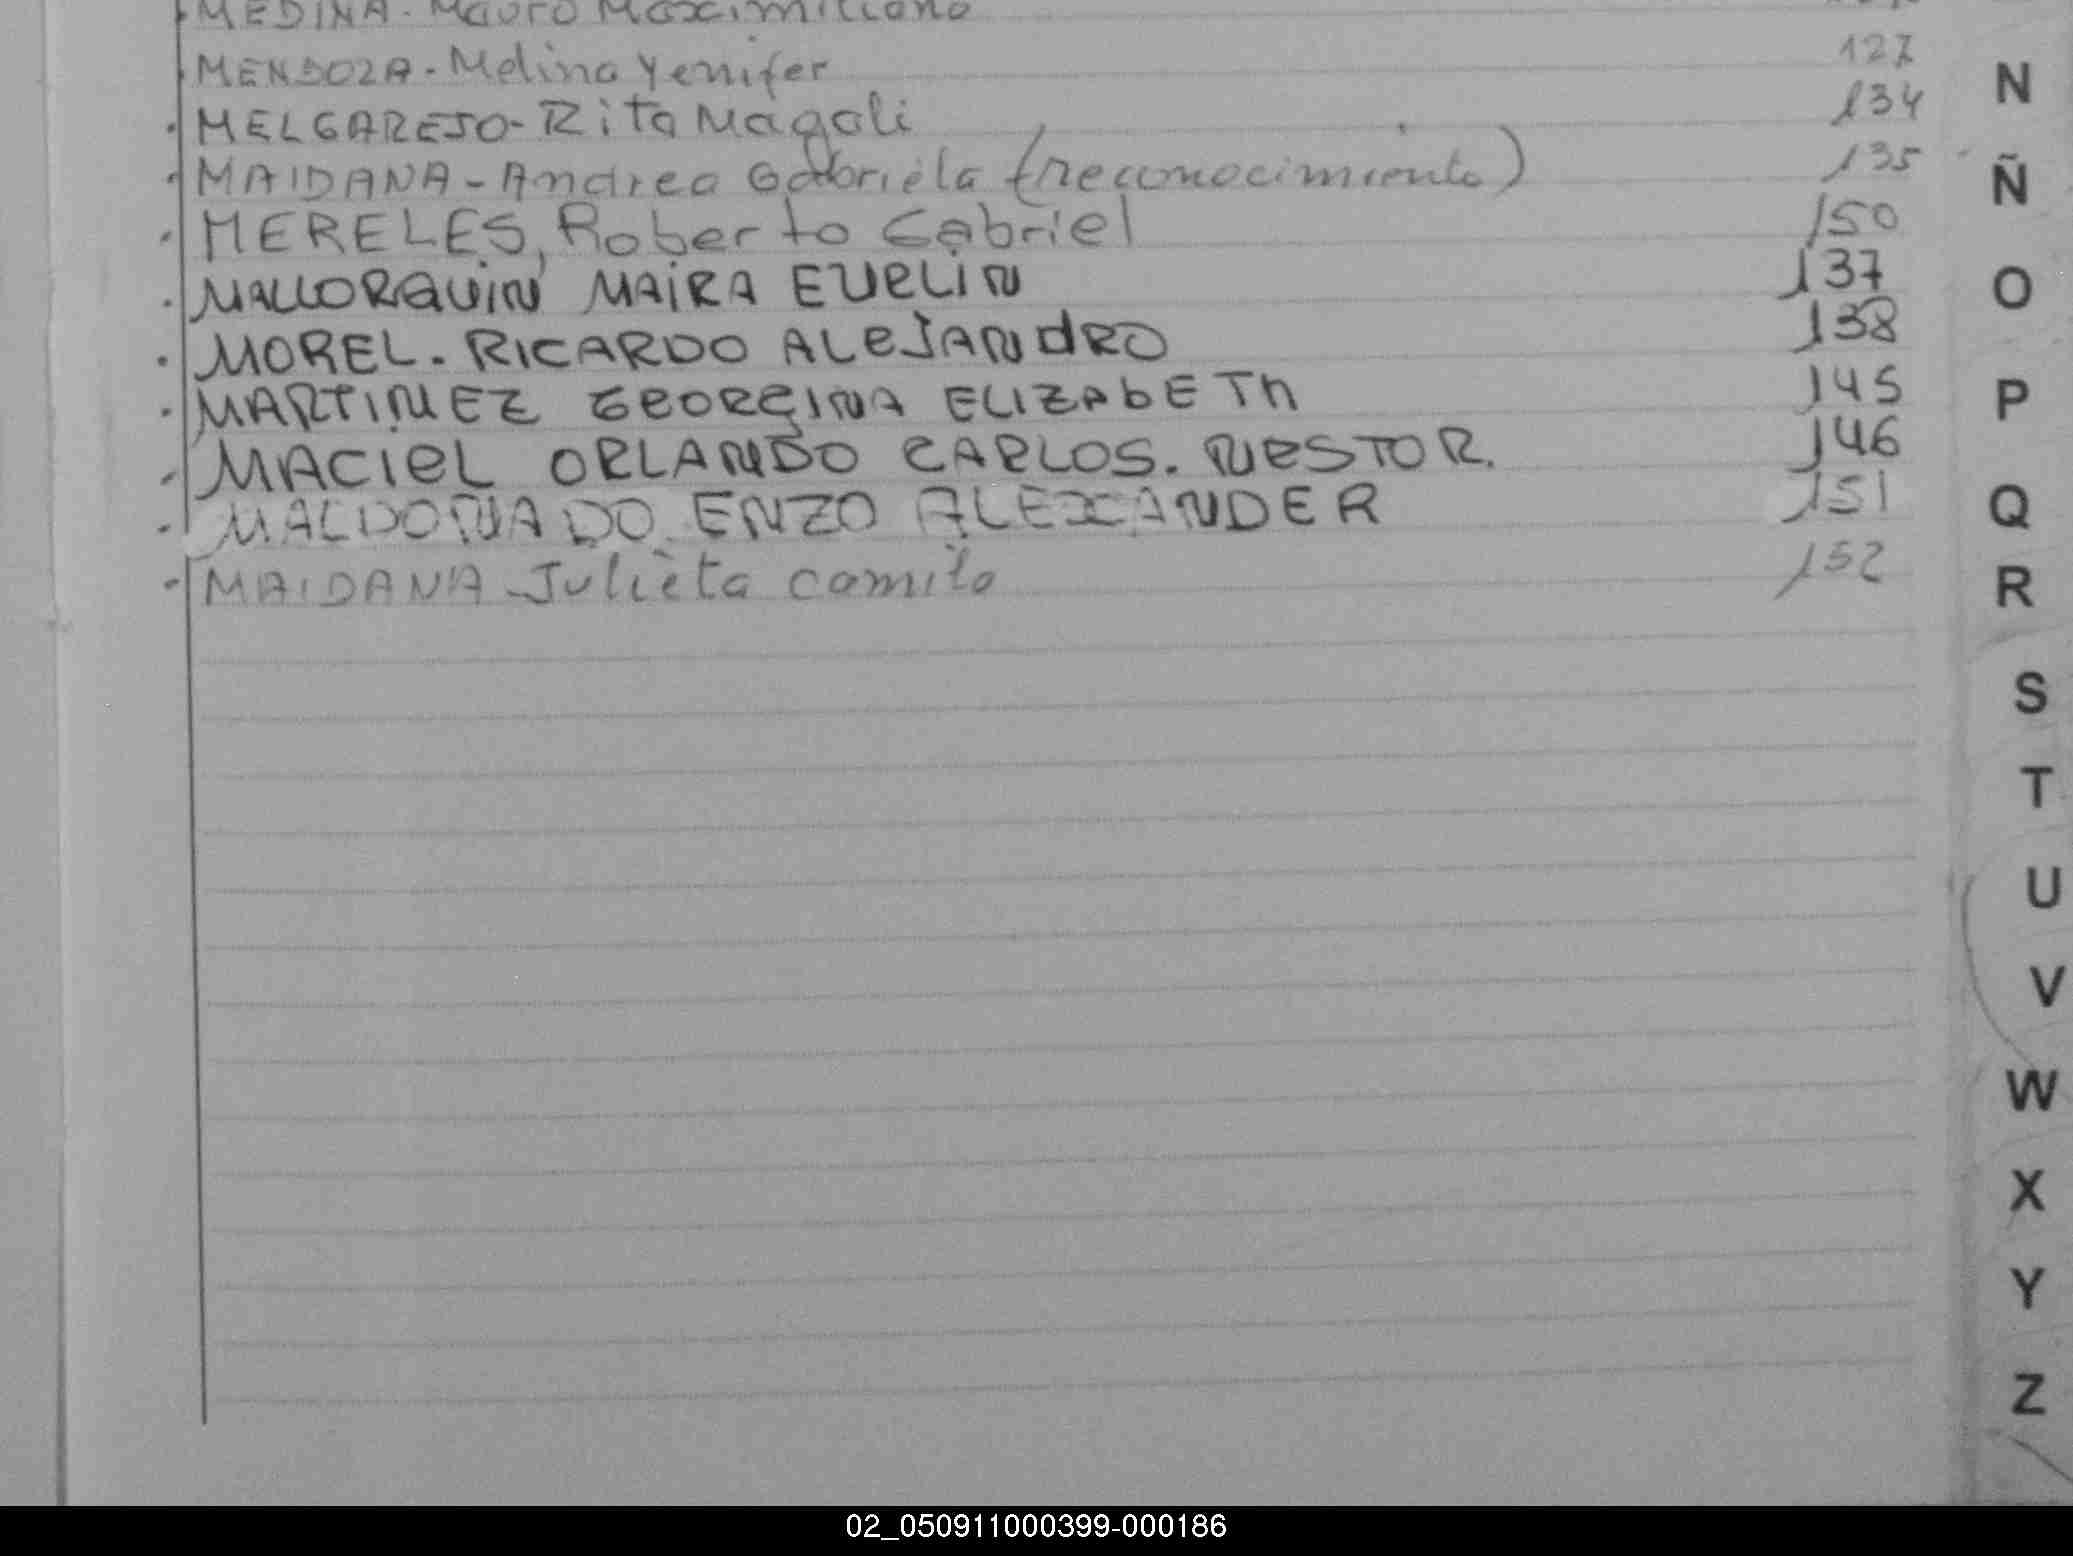 MEDINA - Mauro Maximiliano
MENDOZA - Melina Yenifer 127
MELGAREJO - Rita Magali 134
MAIDANA - Andrea Gabriela (reconocimiento) 135
MERELES, Roberto Gabriel 150
MALLORQUIN MAIRA EVELIN 137
MOREL - RICARDO ALEJANDRO 138
MARTINEZ GEORGINA ELIZABETH 145
MACIEL ORLANDO CARLOS. NESTOR. 146
MALDONADO ENZO ALEXANDER 151
MAIDANA - Julieta Camila 152
N
Ñ
O
P
Q
R
S
T
U
V
W
X
Y
Z
02_050911000399-000186